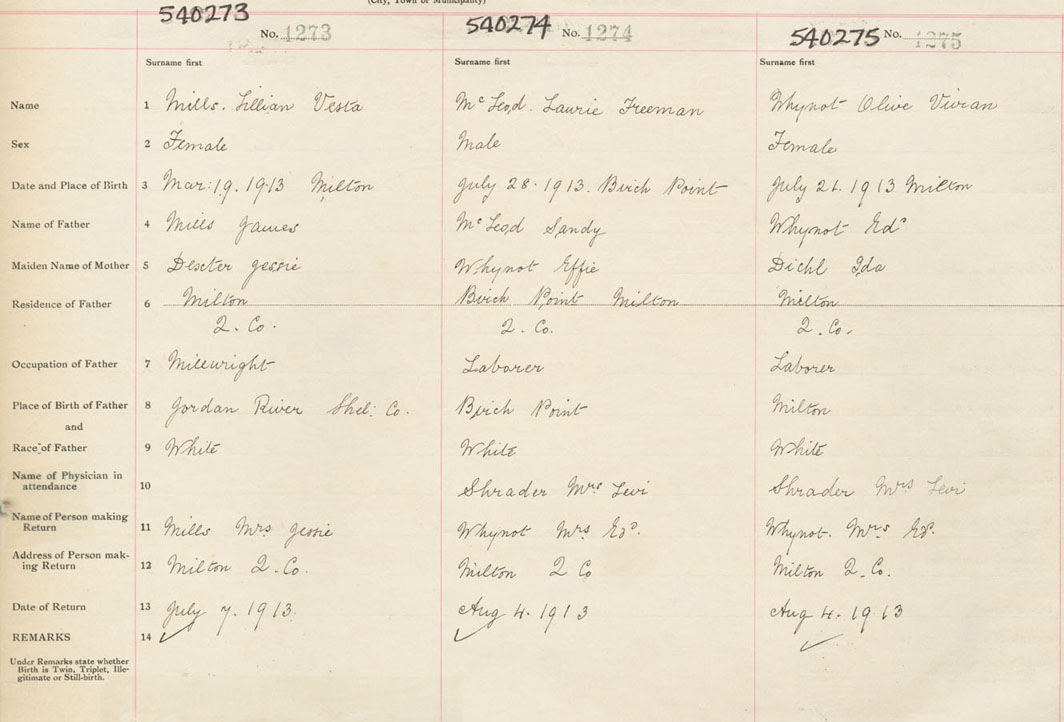 (City, Town or Municipality)
540273 No. 1273 540274 No. 1274 540275 No. 1275
Surname first Surname first Surname first
Name 1 Mills. Lillian Vesta McLeod. Laurie Freeman Whynot Olive Vivian
Sex 2 Female Male Female
Date and Place of Birth 3 Mar: 19. 1913 Milton July 28. 1913. Birch Point July 21. 1913 Milton
Name of Father 4 Mills James McLeod Sandy Whynot Edd
Maiden Name of Mother 5 Dexter Jessie Whynot Effie Diehl Ida
Residence of Father 6 Milton Birch Point Milton Milton
Q. Co. Q. Co. Q. Co.
Occupation of Father 7 Millwright Laborer Laborer
Place of Birth of Father 8 Jordan River Shel: Co. Birch Point Milton
and
Race of Father 9 White White White
Name of Physician in
attendance 10 Shrader Mrs Levi Shrader Mrs Levi
Name of Person making
Return 11 Mills Mrs Jessie Whynot Mrs Edd. Whynot. Mrs Edd.
Address of Person mak-
ing Return 12 Milton Q. Co. Milton Q Co Milton Q. Co.
Date of Return 13 July 7. 1913. Aug 4. 1913 Aug 4. 1913
REMARKS 14
Under Remarks state whether
Birth is Twin, Triplet, Ille-
gitimate or Still-birth.